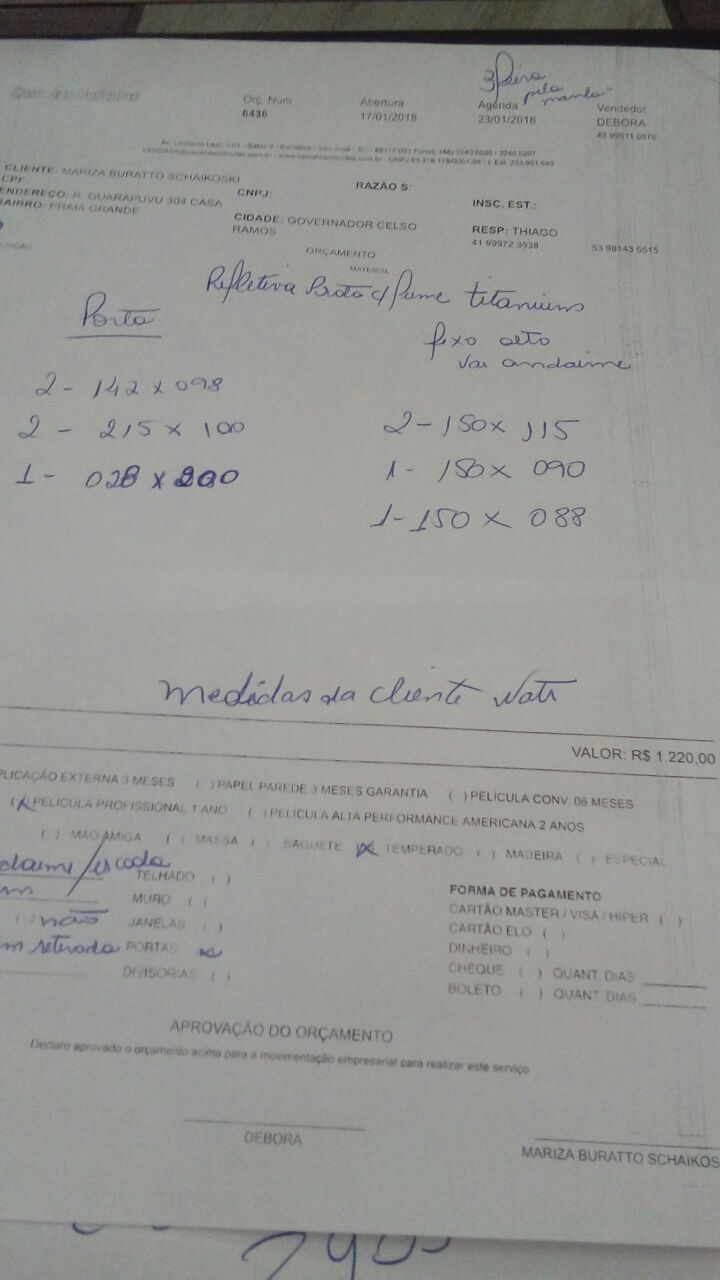 3ª feira
pela manhã
Orç. Num
6436
Abertura
17/01/2018
Agenda
23/01/2018
Vendedor
DEBORA
CLIENTE: MARIZA BURATTO SCHAIKOSKI
CPF:
CNPJ:
RAZÃO S:
INSC. EST.:
ENDEREÇO: R. GUARAPUVU 304 CASA
BAIRRO: PRAIA GRANDE
CIDADE: GOVERNADOR CELSO
RAMOS
RESP: THIAGO
41 99972 3538
53 98143 5515
ORÇAMENTO
MATERIAL
Refletiva Prata c/ fume titanium
Porta
fixo alto
vai andaime
2 - 142 x 098
2 - 215 x 100
1 - 028 x 200
2 - 150 x 115
1 - 150 x 090
1 - 150 x 088
medidas da cliente
VALOR: R$ 1.220,00
PLICAÇÃO EXTERNA 3 MESES ( ) PAPEL PAREDE 3 MESES GARANTIA ( ) PELÍCULA CONV. 06 MESES
(X PELÍCULA PROFISSIONAL 1 ANO ( ) PELÍCULA ALTA PERFORMANCE AMERICANA 2 ANOS
( ) MÃO AMIGA ( ) MASSA ( ) BAGUETE (X TEMPERADO ( ) MADEIRA ( ) ESPECIAL
daime/escada
TELHADO ( )
MURO ( )
( ) não JANELAS ( )
m retirada PORTAS (x
DIVISORIAS ( )
FORMA DE PAGAMENTO
CARTÃO MASTER / VISA / HIPER ( )
CARTÃO ELO ( )
DINHEIRO ( )
CHEQUE ( ) QUANT DIAS
BOLETO ( ) QUANT DIAS
APROVAÇÃO DO ORÇAMENTO
Declaro aprovado o orçamento acima para a movimentação empresarial para realizar este serviço
DEBORA
MARIZA BURATTO SCHAIKOS